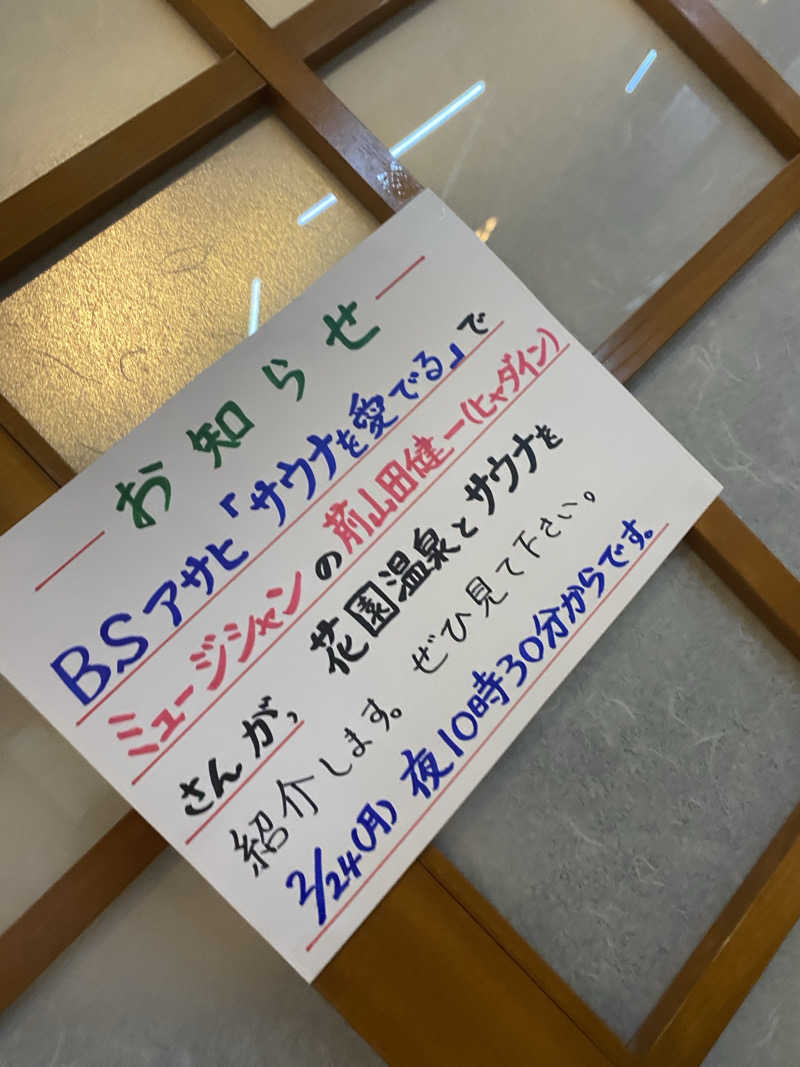 お知らせ
BSアサヒ「サウナを愛でる」で
ミュージシャンの前山田健一(ヒャダイン)
さんが、花園温泉とサウナを
紹介します。ぜひ見て下さい。
2/24(月)夜10時30分からです。